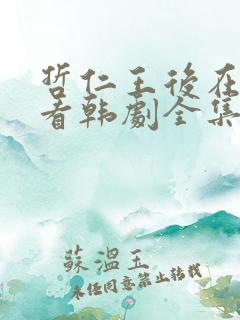 哲仁王後在
看韩劇全集
蘇溫玉
未经同意禁止转载